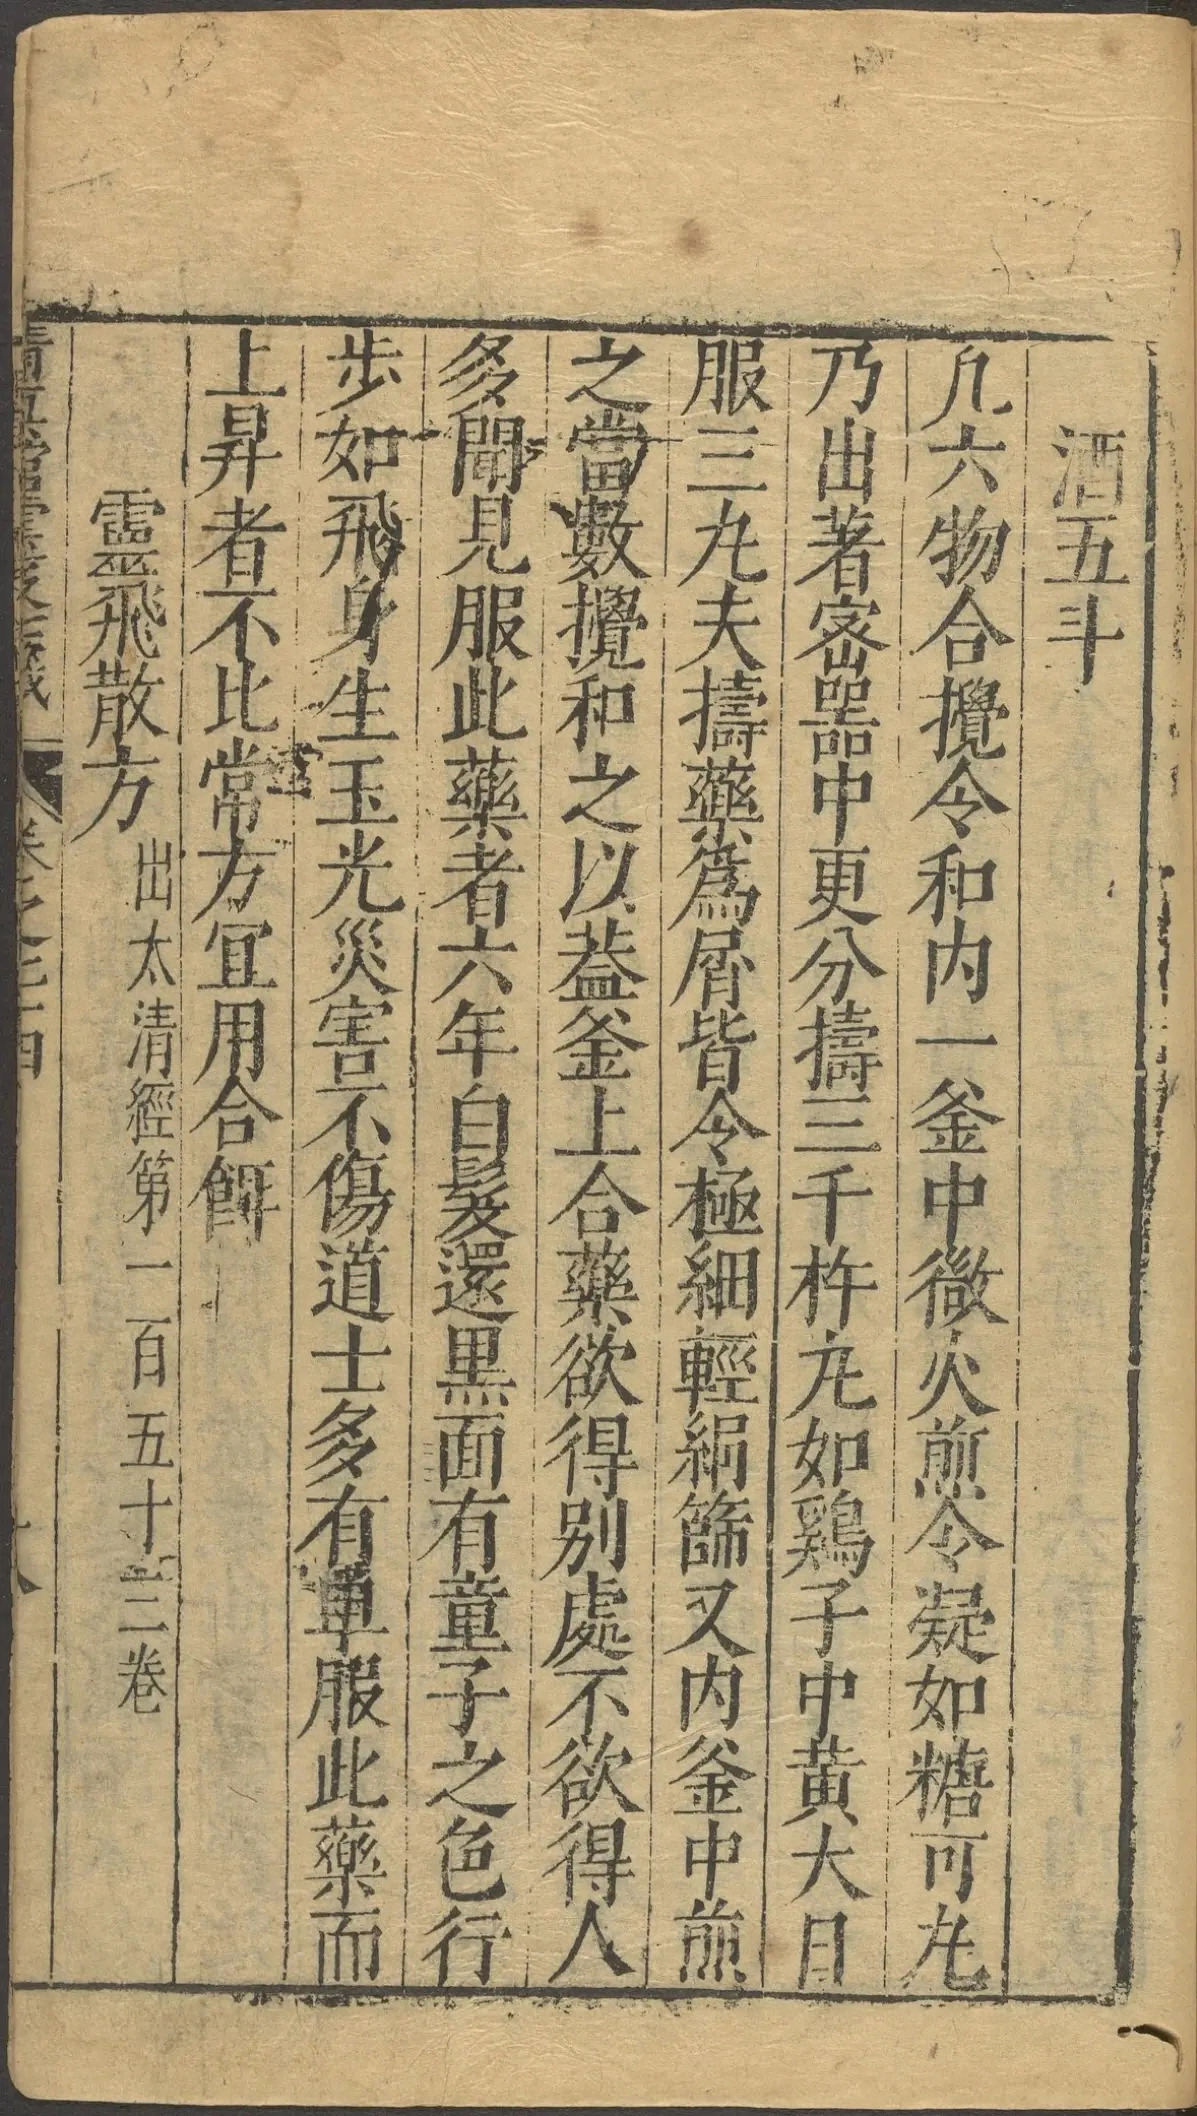 酒五斗
凢六物合攪令和内一釜中微火煎令凝如糖可丸
乃出著密器中更分擣三千杵丸如鷄子中黄大日
服三丸夫擣藥爲屑皆令極細輕絹篩又内釜中煎
之當數攪和之以葢釜上合藥欲得别處不欲得人
多聞見服此藥者六年白髮還黒面有童子之色行
步如飛身生玉光災害不傷道士多有單服此藥而
上昇者不比常方冝用合餌
靈飛散方出太清經第一百五十三卷